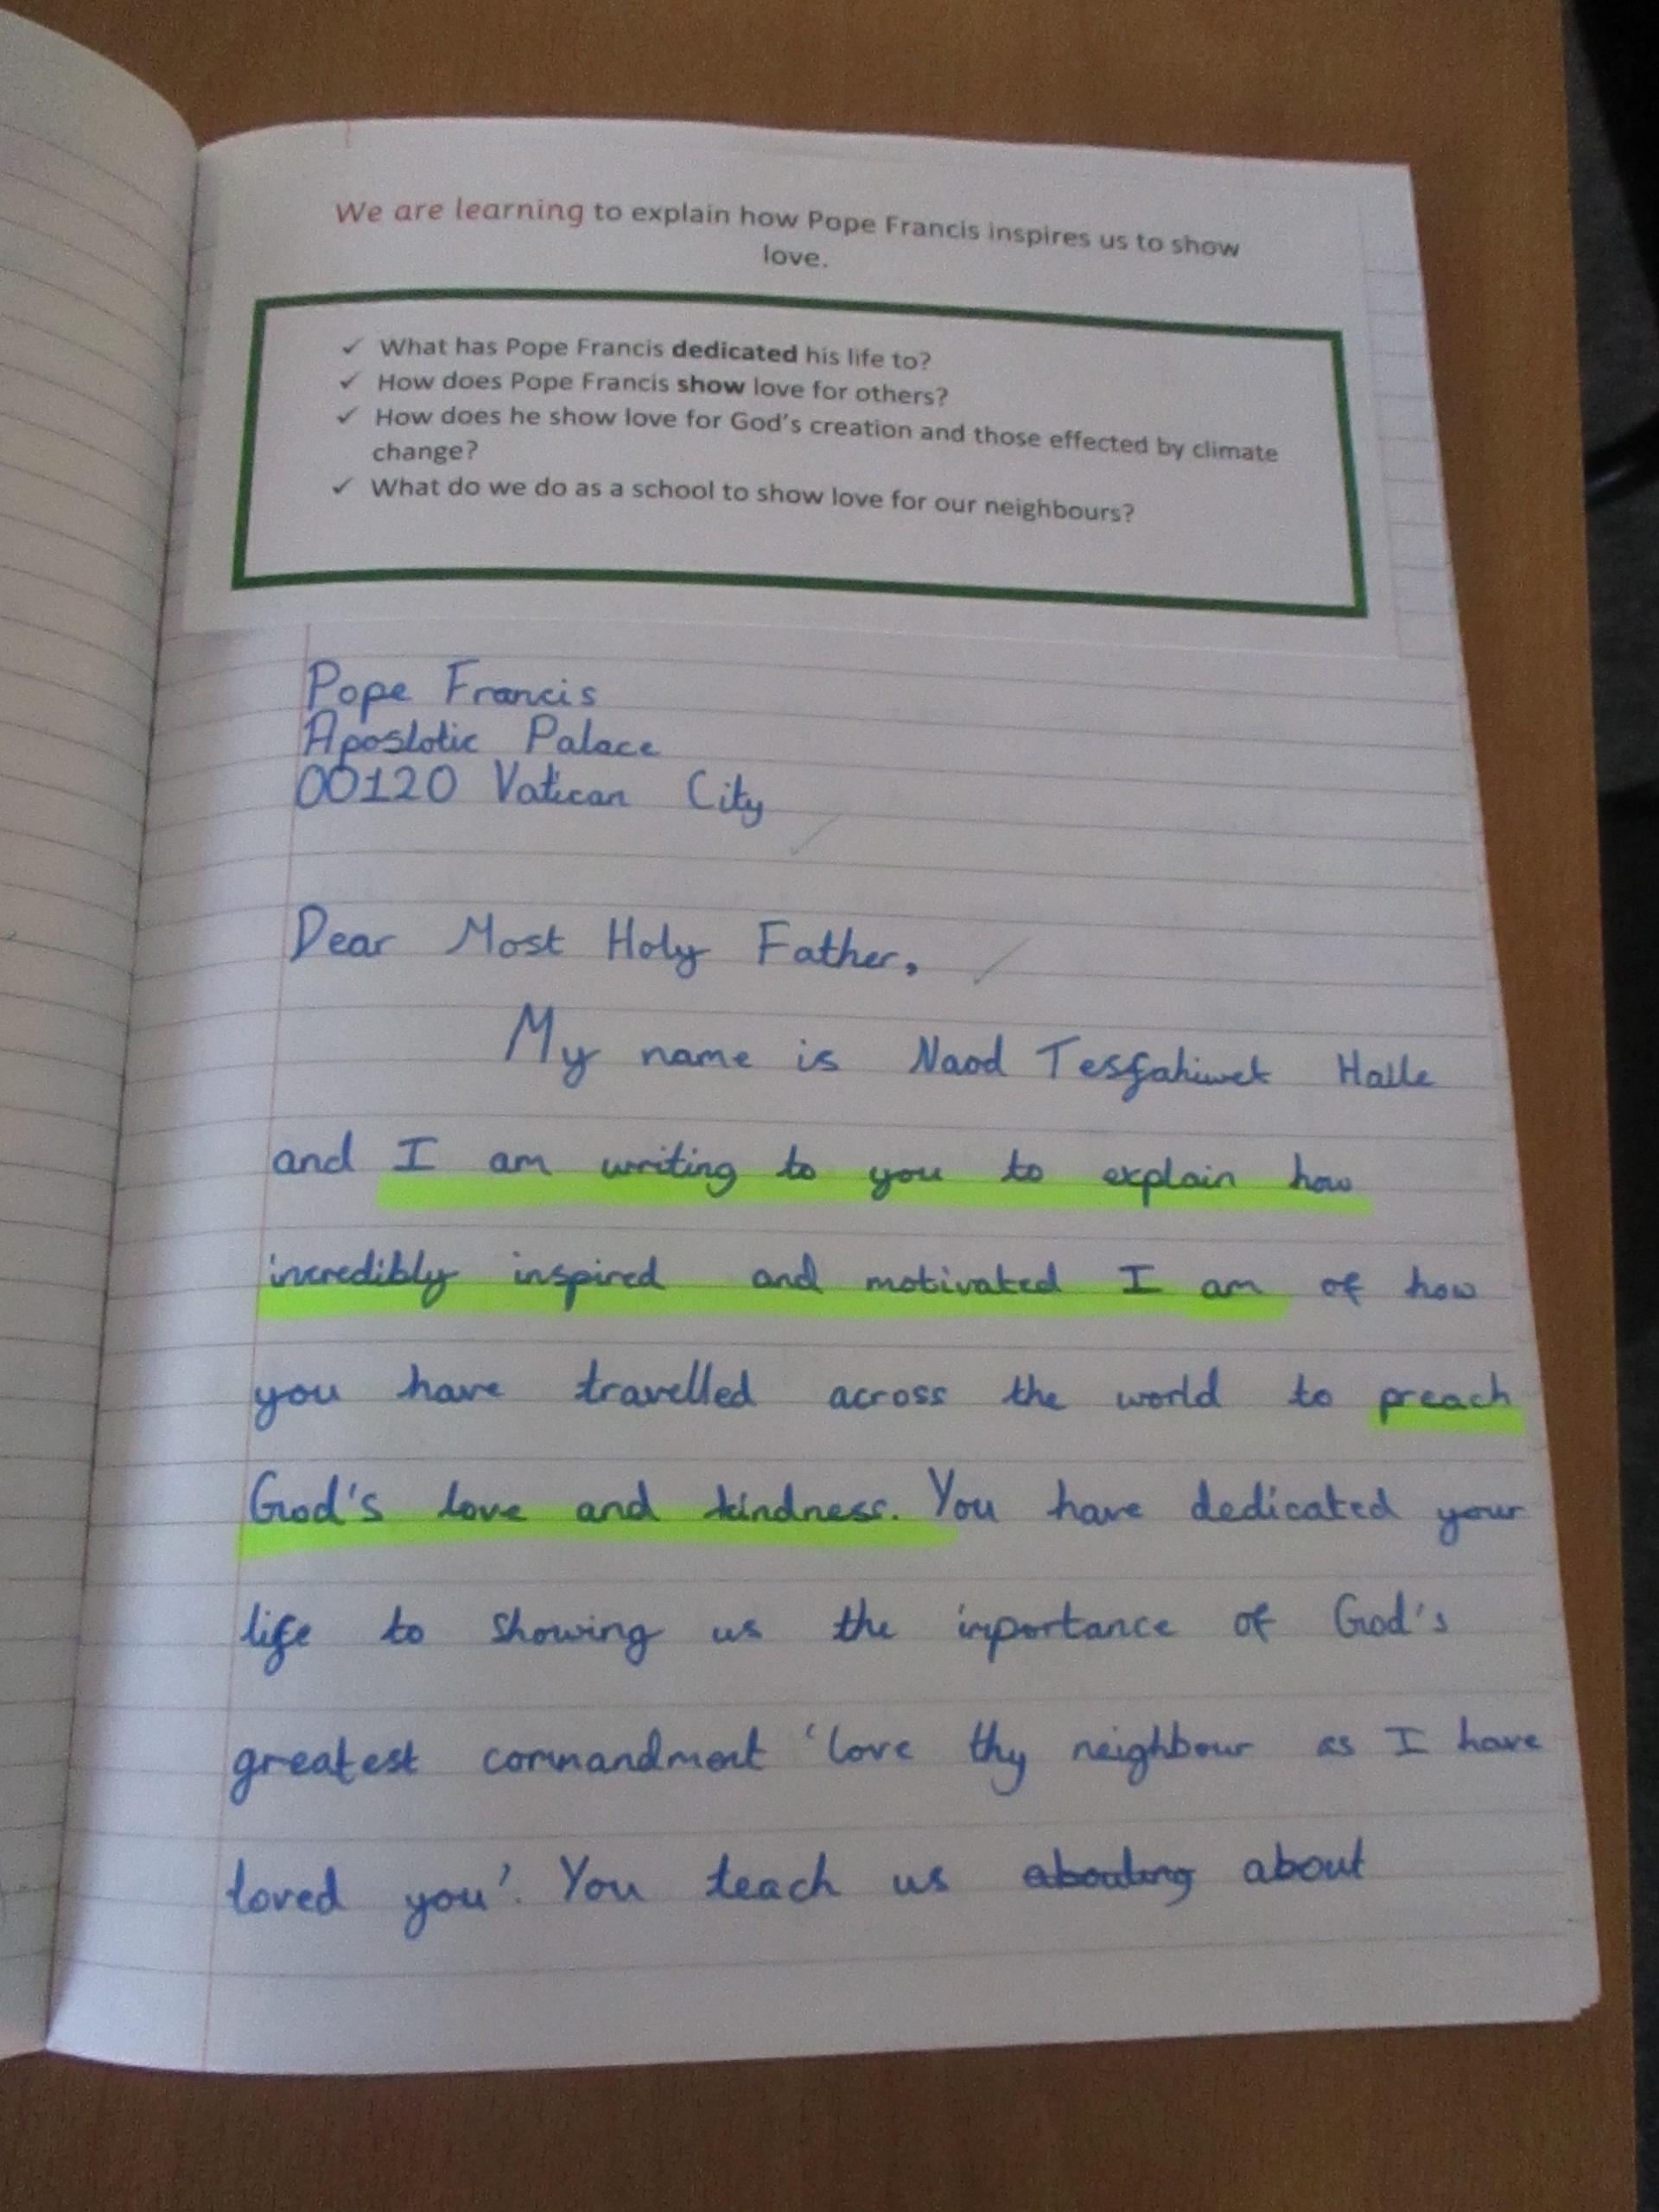 We are learning to explain how Pope Francis inspires us to show
love.
✓ What has Pope Francis dedicated his life to?
✓ How does Pope Francis show love for others?
✓ How does he show love for God's creation and those effected by climate
change?
✓ What do we do as a school to show love for our neighbours?
Pope Francis
Aposlotic Palace
00120 Vatican City
Dear Most Holy Father,
My name is Naod Tesfahiwet Haile
and I am writing to you to explain how
incredibly inspired and motivated I am of how
you have travelled across the world to preach
God's love and kindness. You have dedicated your
life to showing us the importance of God's
greatest commandment 'love thy neighbour as I have
loved you'. You teach us about